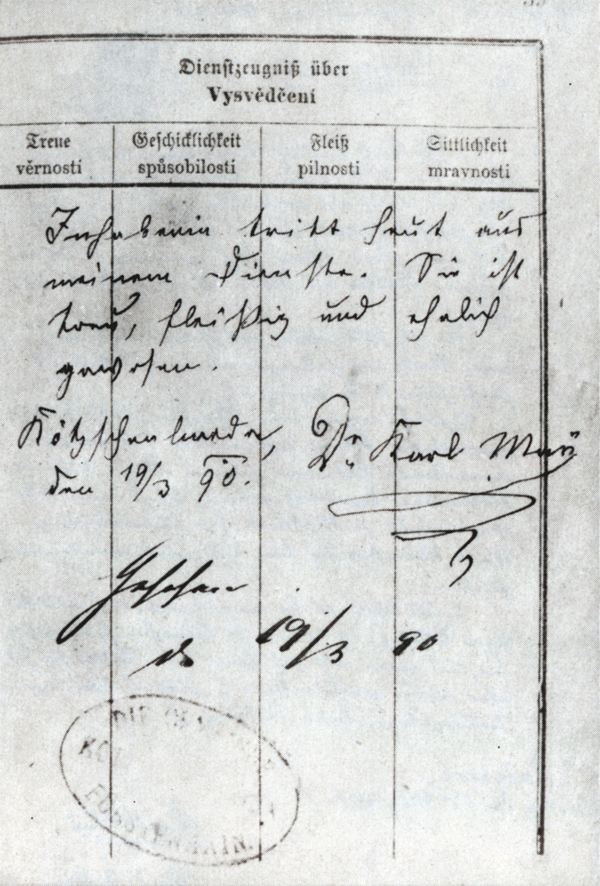 Dienstzeugniß über
Vysvědčení
Treue Geschicklichkeit Fleiß Sittlichkeit
věrnosti spůsobilosti pilnosti mravnosti
Inhaberin tritt heut aus
meinem Dienste. Sie ist
treu, fleißig und ehrlich
gewesen.
Kötzschenbroda, Dr. Karl May
den 19/3 90.
Gesehen
d 19/3 90